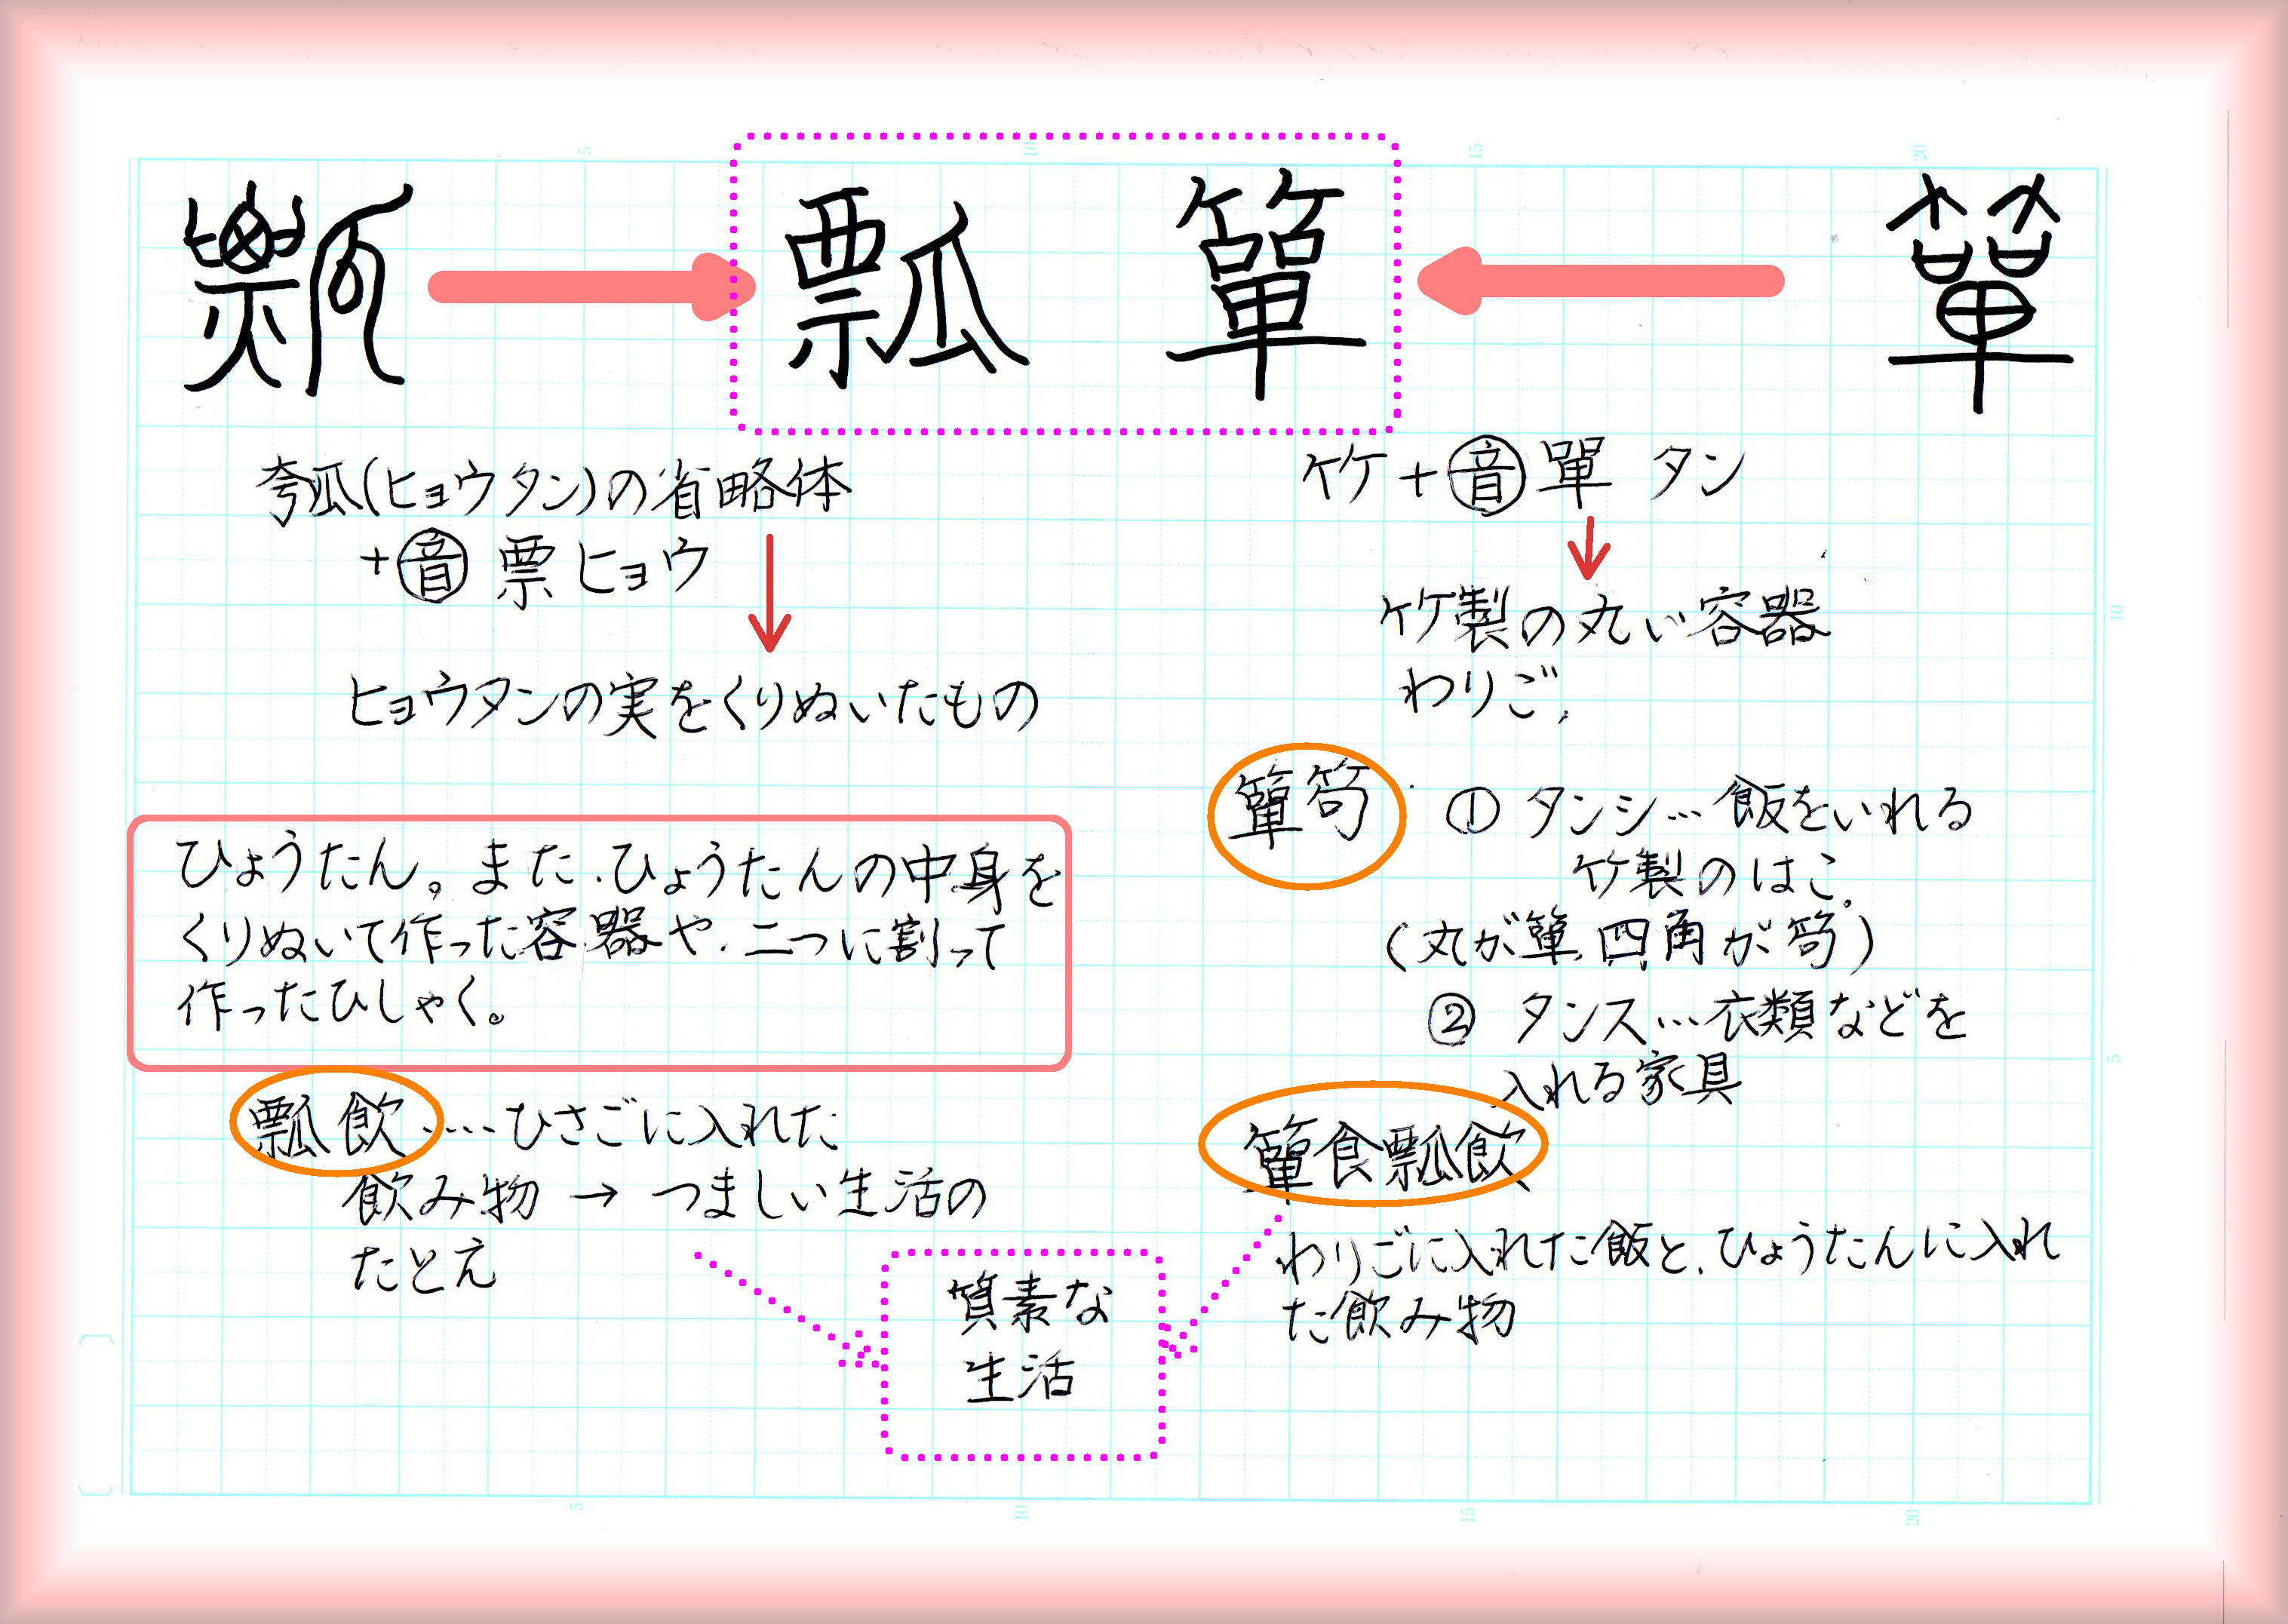 瓢 瓢 簞 簞
夸瓜(ヒョウタン)の省略体
+音 票 ヒョウ
ヒョウタンの実をくりぬいたもの
ひょうたん。また、ひょうたんの中身を
くりぬいて作った容器や、二つに割って
作ったひしゃく。
瓢飲 ‥‥ひさごに入れた
飲み物 → つましい生活の
たとえ
竹+音 單 タン
竹製の丸い容器
わりご,
簞笥 ① タンシ…飯をいれる
竹製のはこ。
(丸が簞、四角が笥)
② タンス…衣類などを
入れる家具
簞食瓢飲
わりごに入れた飯と、ひょうたんに入れ
た飲み物
質素な
生活
5
10
15
20
10
5
5
10
15
20